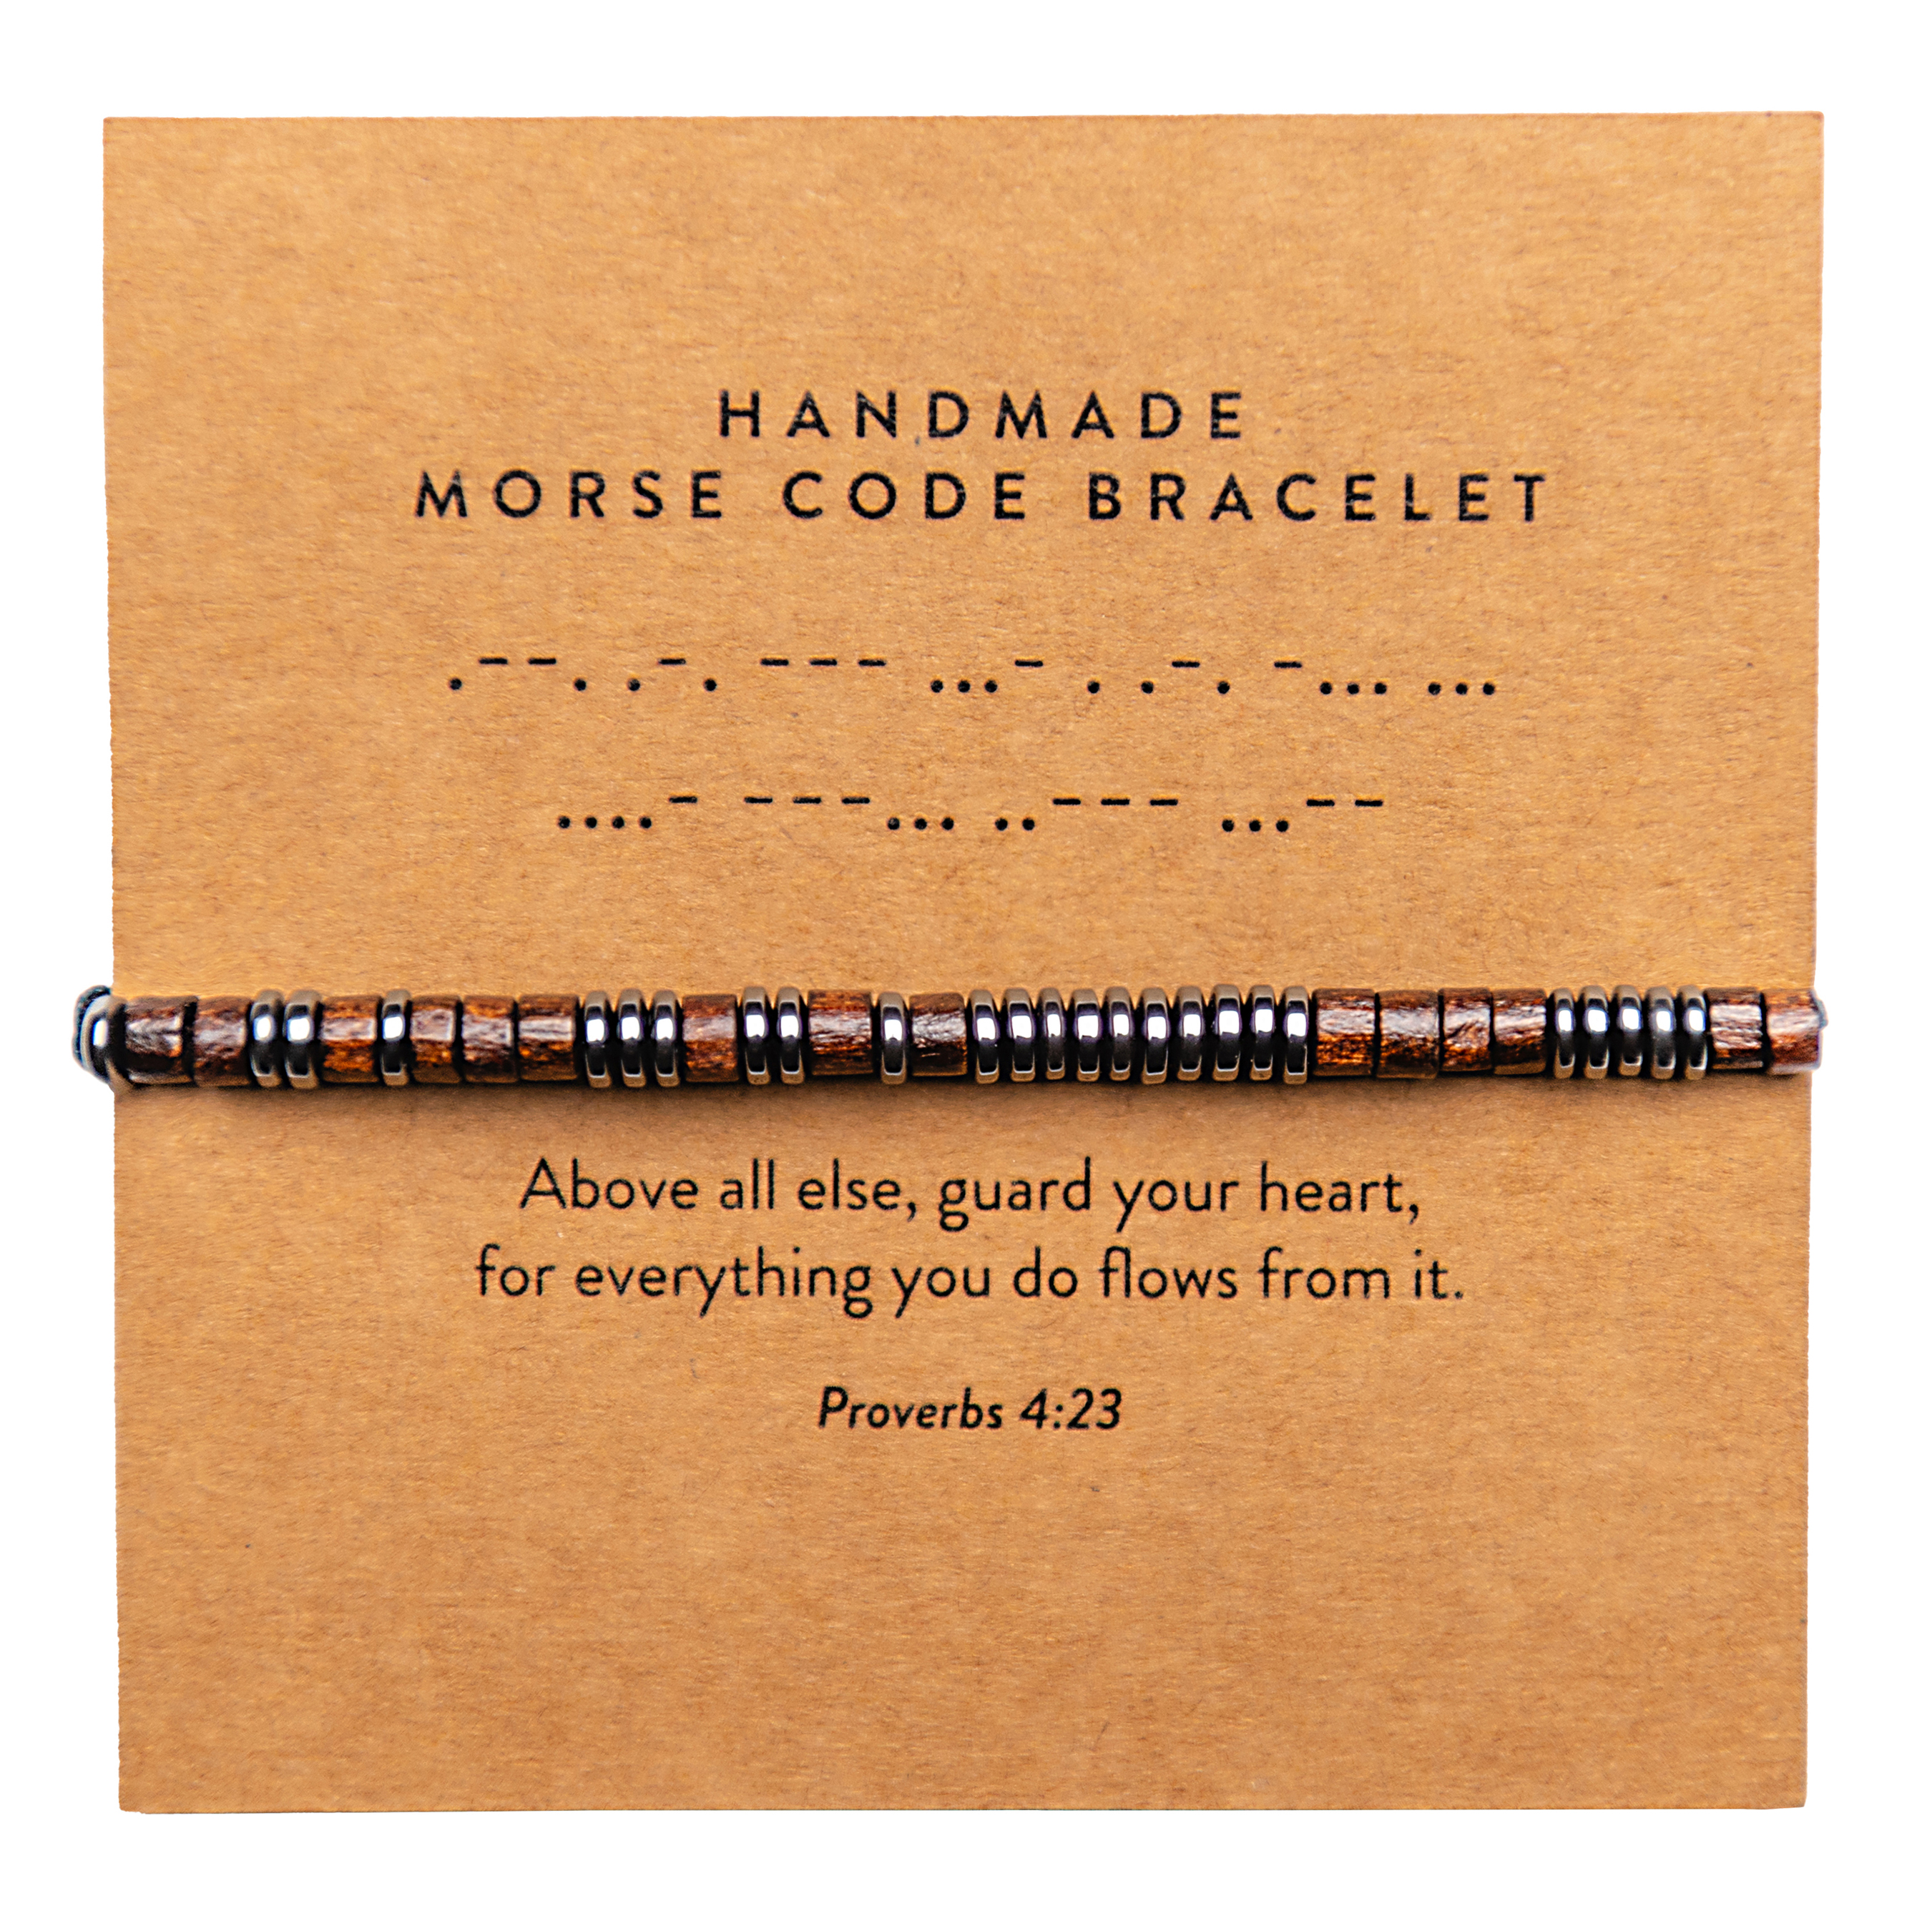 HANDMADE
MORSE CODE BRACELET
.--. .-. --- ...- . .-. -... ...
....- ---... ..--- ...--
Above all else, guard your heart,
for everything you do flows from it.
Proverbs 4:23